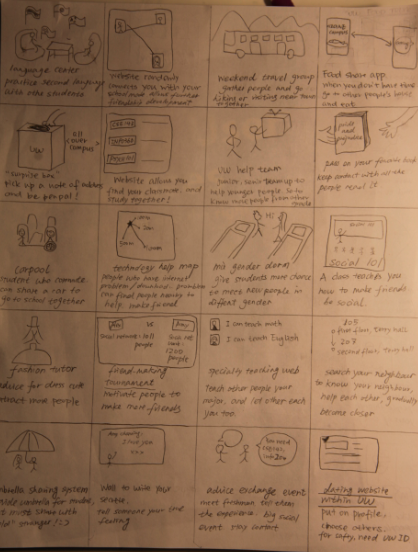 language center
practice second language
with other students
website randomly
connects you with your
friends development!
weekend travel group
gather people and go
hiking or visiting near town
together
Food share app
when you don't want to
go to other people's house
and eat
UW
all
over
campus
"surprise box"
pick up a note of
and be penpal!
website allows you
find your classmate, and
study together!
UW help team
junior, senior team up to
help younger people. So to
know more people from other
pass on your favorite book
keep contact with all the
people rent it
carpool
students who commute
can share a car to
go to school together
technology help map
people who have
problem, problem
can find people nearby to
help. make friend!
Hi
mix gender dorm
give students more chance
to meet new people in
different gender
social 101
A class teaches you
how to make friends
be social.
fashion tutor
advice for dorm cute
attract more people
VS
friend-making
tournament
motivate people to
make more friends
I can teach math
I can teach English
specialty teaching web
teach other people your
major, and let other teach
you too.
205
first floor, Terry hall
207
second floor, Terry hall
search your neighbour
to know your neighbour
help each other, gradually
become closer
umbrella sharing system
provide umbrella for
wall to write your
secrete.
tell someone your true
feeling
advice exchange event
meet freshman tell them
the experience, big social
event. may contact
dating website
within UW
put on profile.
choose others.
for safty, need UW ID